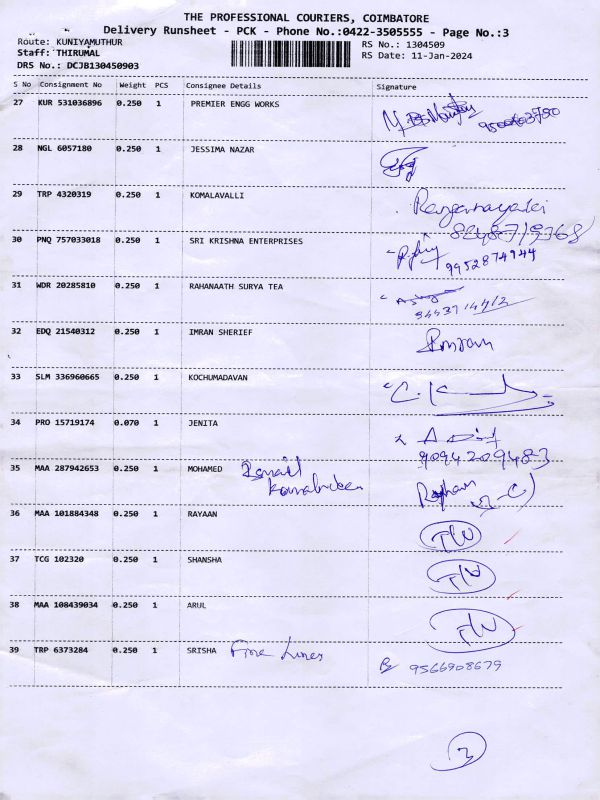 THE PROFESSIONAL COURIERS, COIMBATORE
Delivery Runsheet - PCK - Phone No.:0422-3505555 - Page No.:3
Route: KUNIYAMUTHUR
RS No.: 1304509
Staff: THIRUMAL
RS Date: 11-Jan-2024
DRS No.: DCJB130450903
S No Consignment No Weight PCS Consignee Details Signature
27 KUR 531036896 0.250 1 PREMIER ENGG WORKS
28 NGL 6057180 0.250 1 JESSIMA NAZAR
29 TRP 4320319 0.250 1 KOMALAVALLI Ranganayaki
8248719368
30 PNQ 757033018 0.250 1 SRI KRISHNA ENTERPRISES
9952874944
31 WDR 20285810 0.250 1 RAHANAATH SURYA TEA
32 EDQ 21540312 0.250 1 IMRAN SHERIEF Imran
33 SLM 336960665 0.250 1 KOCHUMADAVAN
34 PRO 15719174 0.070 1 JENITA
9094209483
35 MAA 287942653 0.250 1 MOHAMED Ismail
36 MAA 101884348 0.250 1 RAYAAN
37 TCG 102320 0.250 1 SHANSHA
38 MAA 108439034 0.250 1 ARUL
39 TRP 6373284 0.250 1 SRISHA Fine Lines 9566908679
3